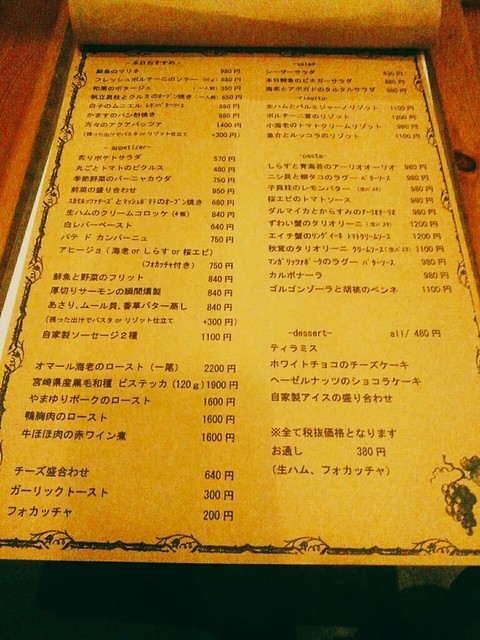 - 本日おすすめ -
鮮魚のマリネ 980円
フレッシュポルチーニのソテー 880円
和栗のポタージュ (一人前) 350円
帆立貝柱とクルミのオーブン焼き (一人前) 650円
白子のムニエル レモンバターソース 880円
かますのパン粉焼き 880円
方々のアクアパッツァ 1400円
(残った出汁でパスタ or リゾット仕立て +300円)
- appetizer-
炙りポテトサラダ 570円
丸ごとトマトのピクルス 480円
季節野菜のバーニャカウダ 750円
前菜の盛り合わせ 950円
スカモルツァチーズとマッシュポテトのオーブン焼き 680円
生ハムのクリームコロッケ (4個) 840円
白レバーペースト 640円
パテ ド カンパーニュ 750円
アヒージョ (海老 or しらす or 桜エビ)
(フォカッチャ付き) 750円
鮮魚と野菜のフリット 840円
厚切りサーモンの瞬間燻製 840円
あさり、ムール貝、香草バター蒸し 840円
(残った出汁でパスタ or リゾット仕立て +300円)
自家製ソーセージ2種 1100円
オマール海老のロースト (一尾) 2200円
宮崎県産黒毛和種 ビステッカ (120g) 1900円
やまゆりポークのロースト 1600円
鴨胸肉のロースト 1600円
牛ほほ肉の赤ワイン煮 1600円
チーズ盛合わせ 640円
ガーリックトースト 300円
フォカッチャ 200円
-salad-
シーザーサラダ
本日鮮魚のビネガーサラダ 880円
海老とアボガドのタルタルサラダ 980円
-risotto-
生ハムとパルミジャーノリゾット 1100円
ポルチーニ茸のリゾット 1200円
小海老のトマトクリームリゾット 980円
魚介とルッコラのリゾット 1100円
-pasta-
しらすと青海苔のアーリオオーリオ 980円
ニシ貝と柳タコのラグー バターソース 980円
子貝柱のレモンバター (生パスタ) 980円
桜エビのトマトソース 980円
ダルマイカとからすみのアーリオオーリオ 980円
ずわい蟹のタリオリーニ (生パスタ) 1200円
エイチ蟹のリングイーネ トマトクリームソース 1200円
秋茸のタリオリーニ クリームソース (生パスタ) 1100円
マンガリッツァポークのラグー バターソース 980円
カルボナーラ 980円
ゴルゴンゾーラと胡桃のペンネ 1100円
-dessert- all/ 480円
ティラミス
ホワイトチョコのチーズケーキ
ヘーゼルナッツのショコラケーキ
自家製アイスの盛り合わせ
※全て税抜価格となります
お通し 380円
(生ハム、フォカッチャ)